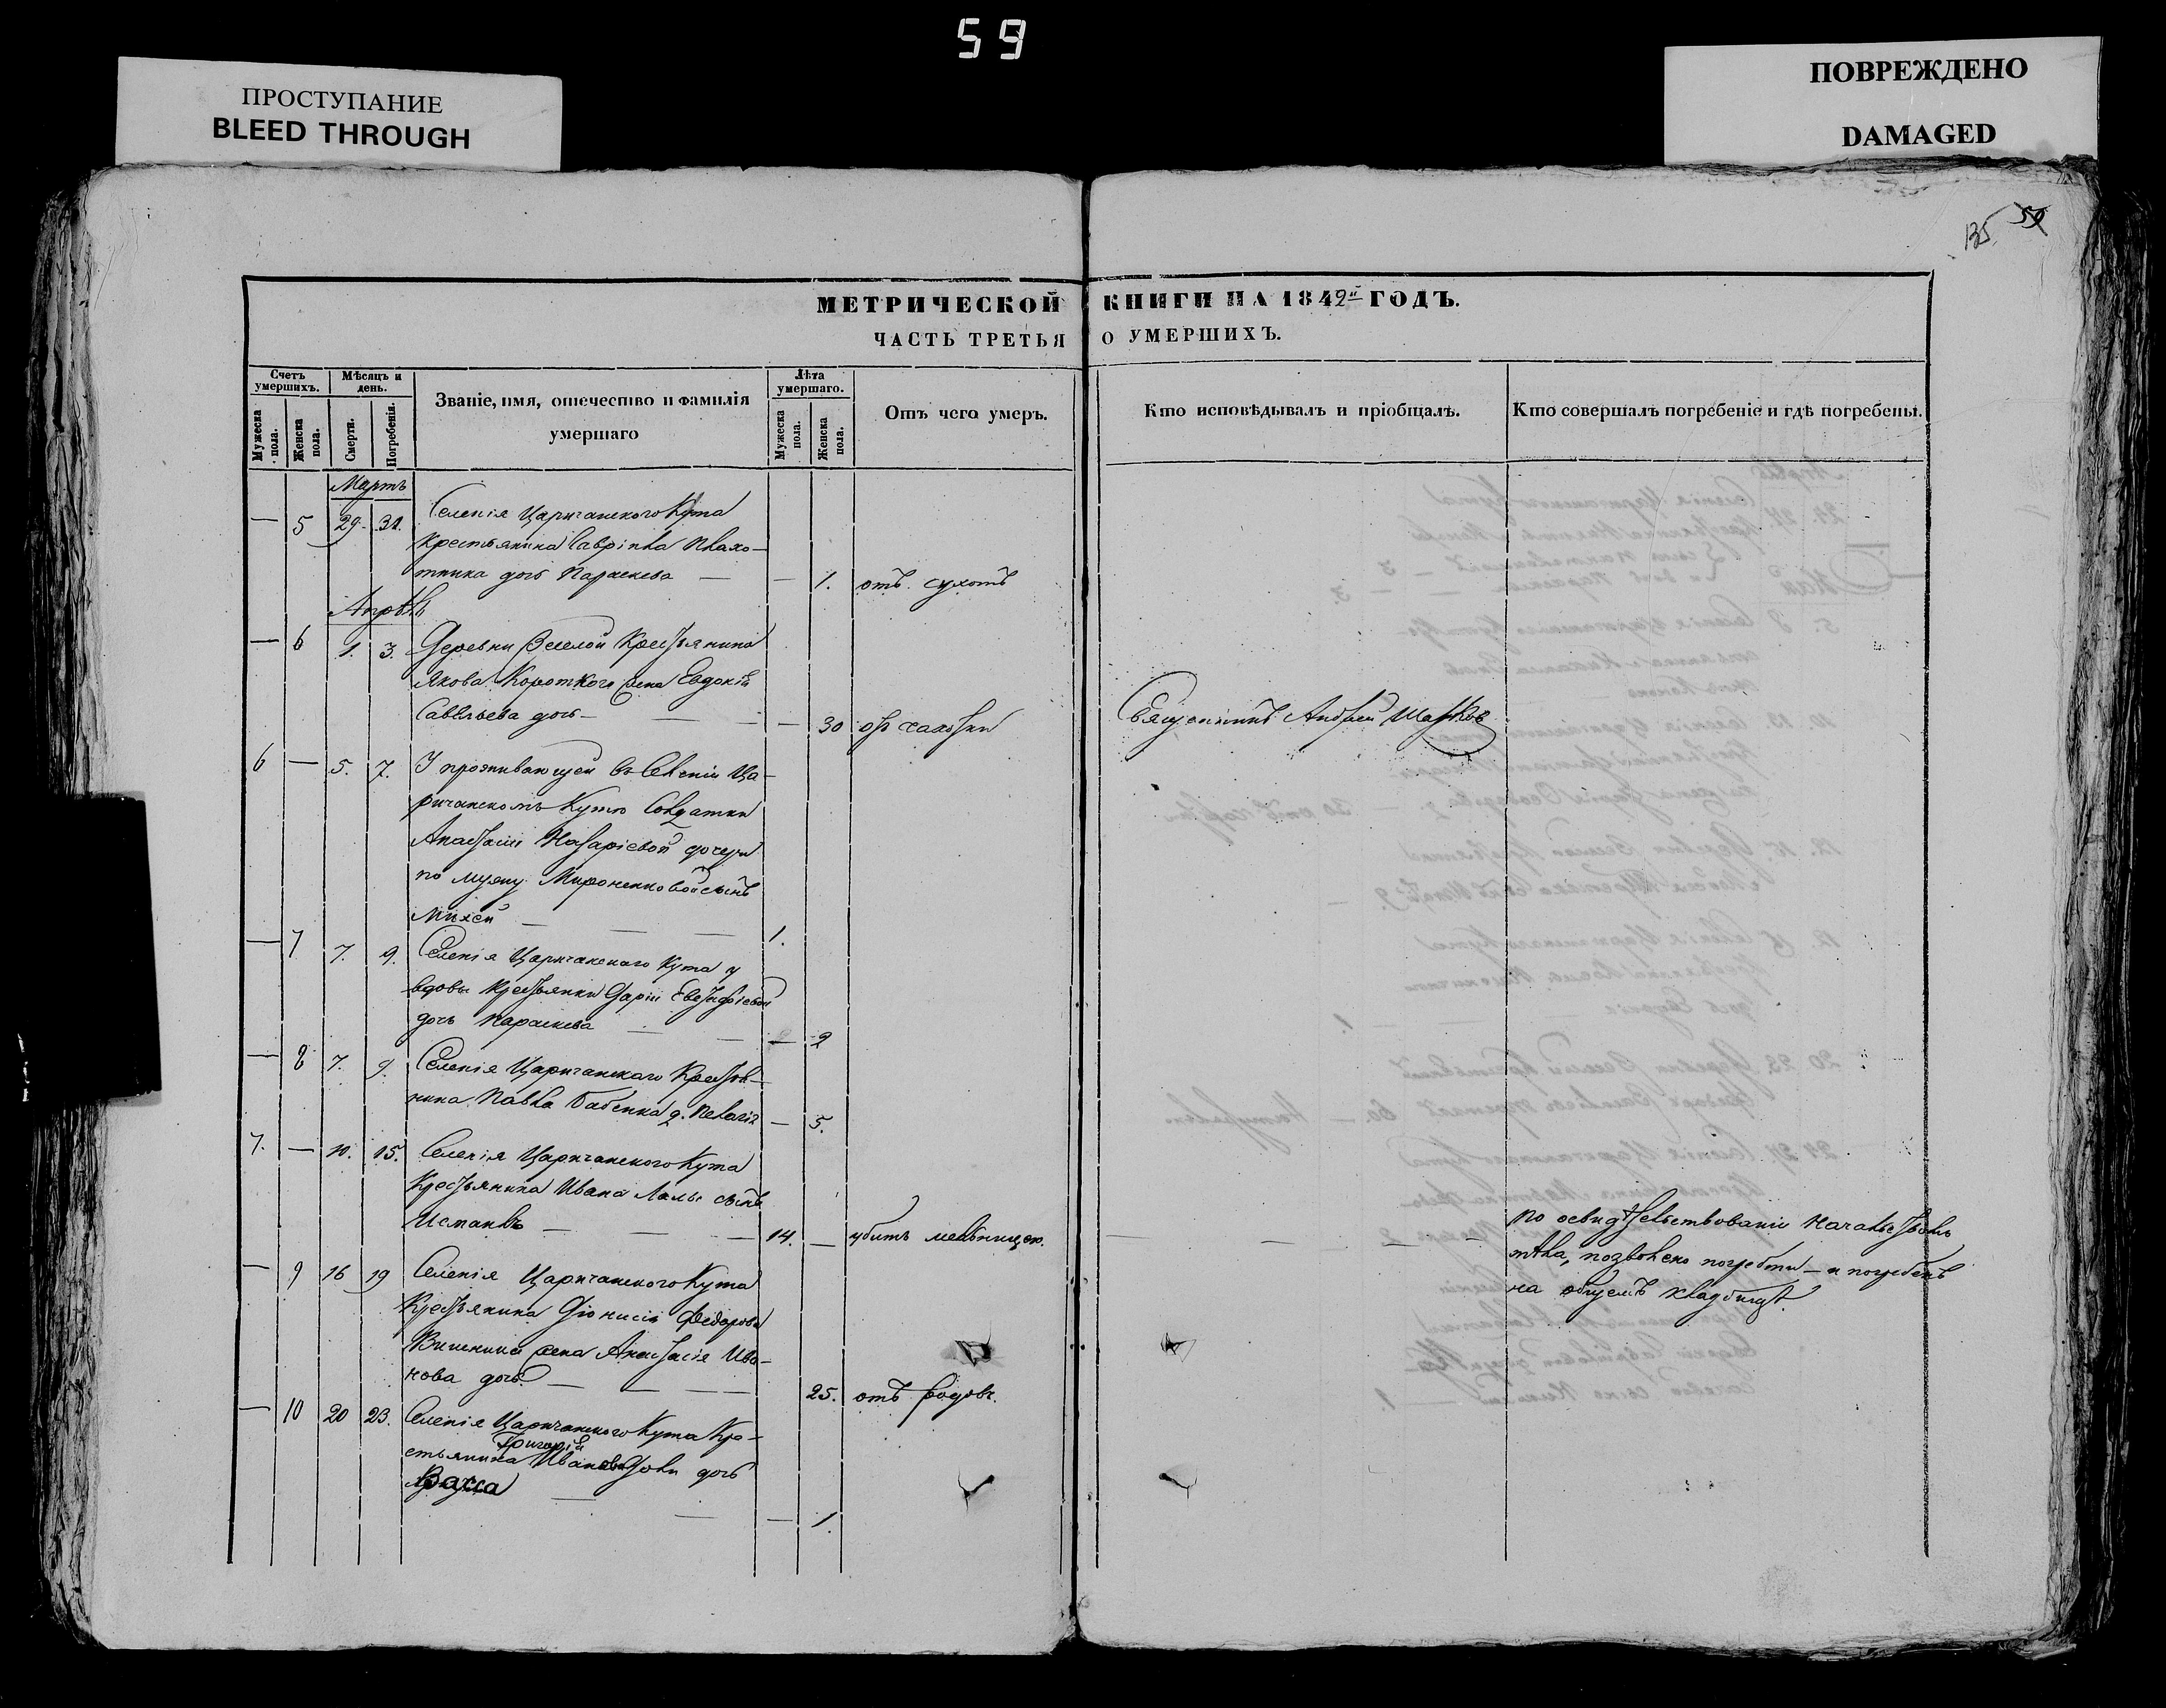 59
ПРОСТУПАНИЕ
BLEED THROUGH
ПОВРЕЖДЕНО
DAMAGED
135. 59
МЕТРИЧЕСКОЙ КНИГИ НА 1849й ГОДЪ.
ЧАСТЬ ТРЕТЬЯ О УМЕРШИХЪ.
Счетъ умершихъ.
Мужеска пола.
Женска пола.
Мѣсяцъ и день.
Смерти.
Погребенія.
Званіе, имя, отечество и фамилія умершаго
Лѣта умершаго.
Мужеска пола.
Женска пола.
Отъ чего умеръ.
Кто исповѣдывалъ и пріобщалъ.
Кто совершалъ погребеніе и гдѣ погребены.
Мартъ
— 5 29. 31. Селенія Царичанского Кута
Крестьянина Плахо-
тника дочь Параскева — — 1. отъ сухотъ
Апрѣль
— 6 1. 3. Деревни Веселой Крестьянина
Якова Короткого жена Евдокія
Савельева дочь — — — — 30 отъ чахотки Священникъ Андрей
6 — 5. 7. У проживающей въ Селеніи Ца-
ричанскомъ Кутѣ Солдатки
Анастасіи Назаріевой дочери
по мужу Мироненковой сынъ
Михей — — — 1.
— 7 7. 9. Селенія Царичанскаго Кута у
вдовы Крестьянки Даріи
дочь Параскева — — — 2
— 8 7. 9. Селенія Царичанскаго Крестья-
нина Павла Бабенка д. Пелагія — 5.
7. — 10. 15. Селенія Царичанского Кута
Крестьянина Ивана сынъ
— — — 14. — убитъ мельницею. — — — —
По освидѣтельствованіи Начальствомъ
тѣла, позволено погребти — и погребенъ
на общемъ кладбищѣ.
— 9 16 19 Селенія Царичанского Кута
Крестьянина Діонисія Федорова
жена Анастасія Ива-
нова дочь. — — — 25. отъ родовъ.
— 10 20 23. Селенія Царичанского Кута Кре-
Григорій
стьянина дочь
Васса — — — 1.